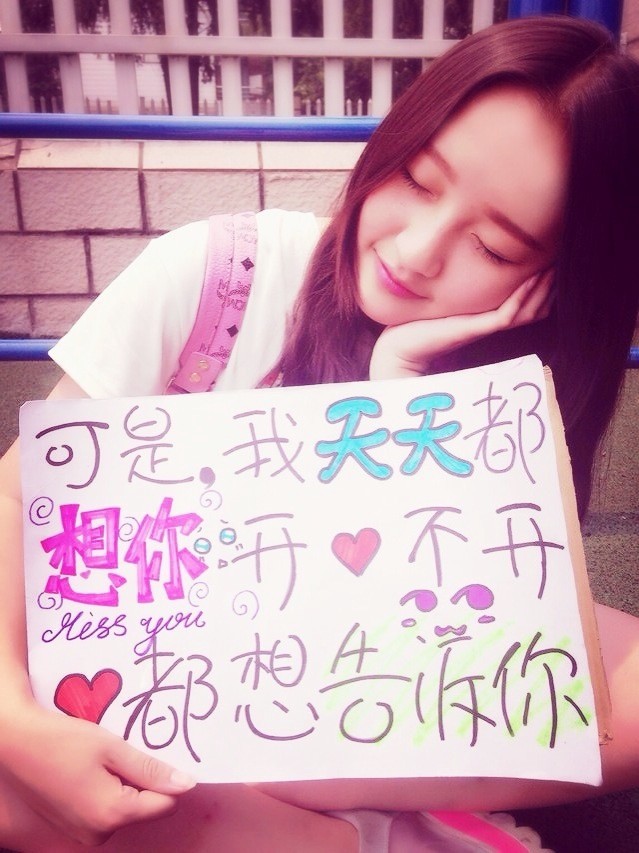 可是,我天天都
想你开❤不开
Miss you
❤都想告诉你
MCM